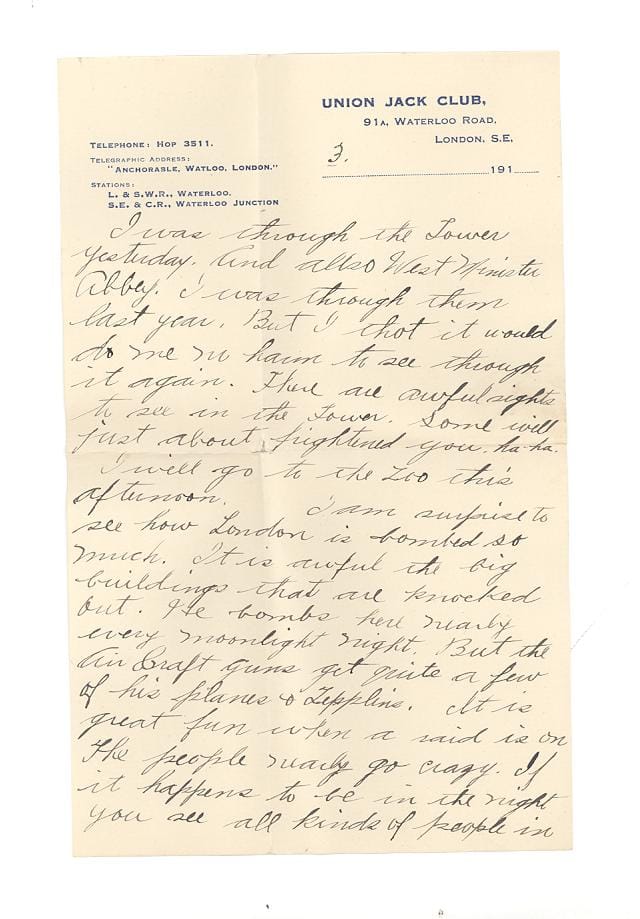 UNION JACK CLUB,
91A, WATERLOO ROAD,
LONDON, S.E,
TELEPHONE: HOP 3511.
TELEGRAPHIC ADDRESS:
"ANCHORABLE, WATLOO, LONDON."
STATIONS:
L. & S.W.R., WATERLOO.
S.E. & C.R., WATERLOO JUNCTION
3.
191
I was through the Tower
yesterday. And allso West Minister
Abbey. I was through them
last year. But I thot it would
do me no harm to see through
it again. There are awful sights
to see in the Tower. Some will
just about frightened you. ha-ha.
I will go to the Zoo this
afternoon. I am surprise to
see how London is bombed so
much. It is awful the big
buildings that are knocked
out. He bombs here nearly
every moonlight night. But the
Air Craft guns get quite a few
of his planes & Zepplins. It is
great fun when a raid is on
The people nearly go crazy. If
it happens to be in the night
you see all kinds of people in